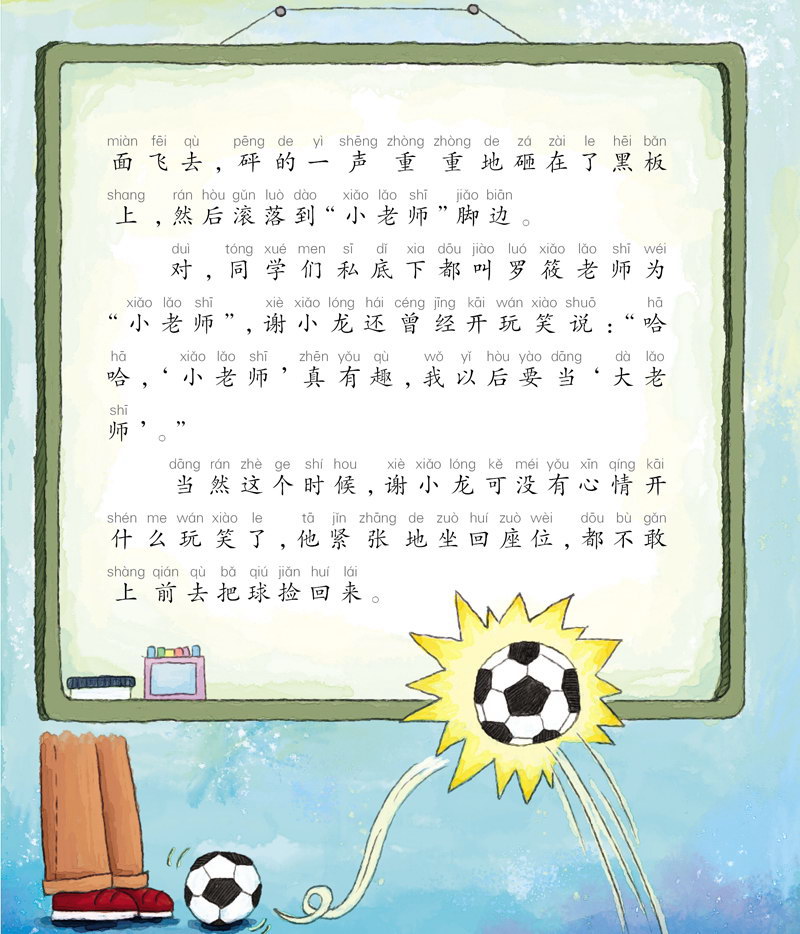 miàn fēi qù pēng de yì shēng zhòng zhòng de zá zài le hēi bǎn
面飞去，砰的一声重重地砸在了黑板
shang rán hòu gǔn luò dào xiǎo lǎo shī jiǎo biān
上，然后滚落到“小老师”脚边。
duì tóng xué men sī dǐ xia dōu jiào luó xiǎo lǎo shī wéi
对，同学们私底下都叫罗筱老师为
xiǎo lǎo shī xiè xiǎo lóng hái céng jīng kāi wán xiào shuō hā
“小老师”，谢小龙还曾经开玩笑说：“哈
hā xiǎo lǎo shī zhēn yǒu qù wǒ yǐ hòu yào dāng dà lǎo
哈，‘小老师’真有趣，我以后要当‘大老
shī
师’。”
dāng rán zhè ge shí hou xiè xiǎo lóng kě méi yǒu xīn qíng kāi
当然这个时候，谢小龙可没有心情开
shén me wán xiào le tā jǐn zhāng de zuò huí zuò wèi dōu bù gǎn
什么玩笑了，他紧张地坐回座位，都不敢
shàng qián qù bǎ qiú jiǎn huí lái
上前去把球捡回来。